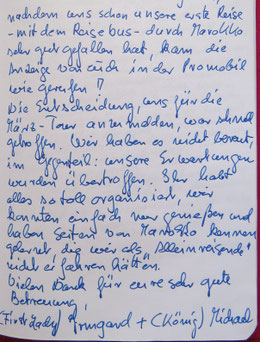 nachdem uns schon unsere erste Reise
- mit dem Reisebus - durch Marokko
sehr gut gefallen hat, kam die
Anzeige von euch in der Promobil
wie gerufen!
Die Entscheidung, uns für die
März-Tour anzumelden, war schnell
getroffen. Wir haben es nicht bereut,
im Gegenteil: unsere Erwartungen
wurden übertroffen. Ihr habt
alles so toll organisiert, wir
konnten einfach nur genießen und
haben Seiten von Marokko kennen
gelernt, die wir als "Alleinreisende"
nicht erfahren hätten.
Vielen Dank für eure sehr gute
Betreuung,
(First Lady) Irmgard + (König) Michael